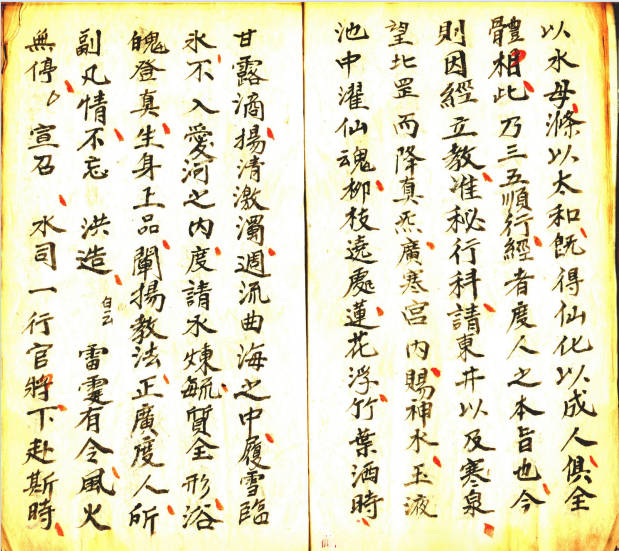 以水母滌以太和旣得仙化以成人俱全
體相此乃三五順行經者度人之本旨也今
則因經立教准秘行科請東井以及寒泉
望北罡而降真炁廣寒宫内賜神水玉液
池中濯仙魂柳枝遶處蓮花浮竹葉洒時
甘露滴揚清激濁週流曲海之中履雪臨
氷不入愛河之内度請水煉毓質全形浴
魄登真生身上品闡揚教法正廣度人所
副凡情不忘 洪造 白云 雷霆有令風火
無停 宣召 水司一行官將下赴斯時